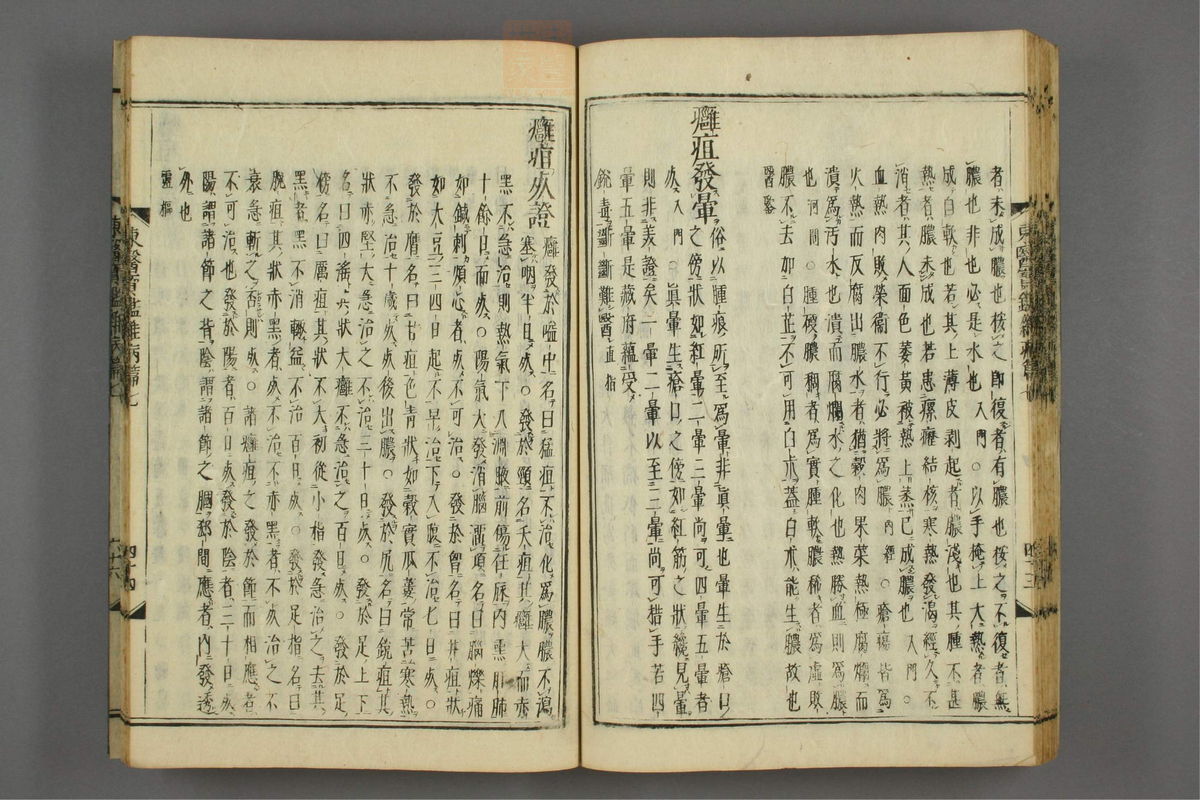 者未成膿也按之卽復者有膿也按之不復者無
膿也非也必是水也入門○以手掩上大熱者膿
成自軟也若其上薄皮剝起者膿淺也其腫不甚
熱者膿未成也若患瘰癧結核寒熱發渴經久不
消者其人面色萎黃被熱上蒸已成膿也入門○
血熱肉敗榮衛不行必將爲膿內經○瘡瘍皆爲
火熱而反腐出膿水者猶穀肉果菜熱極腐爛而
潰爲汚水也潰而腐爛水之化也熱勝血則爲膿
也河間○腫硬膿稠者爲實腫軟膿稀者爲虛敗
膿不去如白芷不可用白朮蓋白朮能生膿故也
醫鑑
癰疽發暈
俗以腫痕所至爲暈非眞暈也暈生於瘡口
之傍狀如紅暈二暈三暈尙可四暈五暈者
死入門○眞暈生瘡口之傍如紅筋之狀纔見暈
則非美證矣一暈二暈以至三暈尙可措手若四
暈五暈是藏府蘊受
銳毒斷斷難醫直指
東醫寶鑑雜病篇七
四十三
癰疽死證
癰發於嗌中名曰猛疽不治化爲膿膿不瀉
塞咽半日死○發於頸名夭疽其癰大而赤
黑不急治則熱氣下入淵腋前傷任脉內熏肝肺
十餘日而死○陽氣大發消腦濡項名曰腦爍痛
如鍼刺煩心者死不可治○發於胷名曰井疽狀
如大豆三四日起不早治下入腹不治七日死○
發於膺名曰甘疽色靑狀如穀實瓜蔞常苦寒熱
不急治十歲死死後出膿○發於尻名曰銳疽其
狀赤堅大急治之不治三十日死○發於足上下
名曰四淫其狀大癰不急治之百日死○發於足
傍名曰厲疽其狀不大初從小指發急治之去其
黑者黑不消輒益不治百日死○發於足指名曰
脫疽其狀赤黑者死不治不赤黑者不死治之不
衰急斬之否則死○諸癰疽之發於節而相應者
不可治也發於陽者百日死發於陰者三十日死
陽謂諸節之背陰謂諸節之膕郄間應者內發透
外也
靈樞
東醫寶鑑雜病篇七
四十四